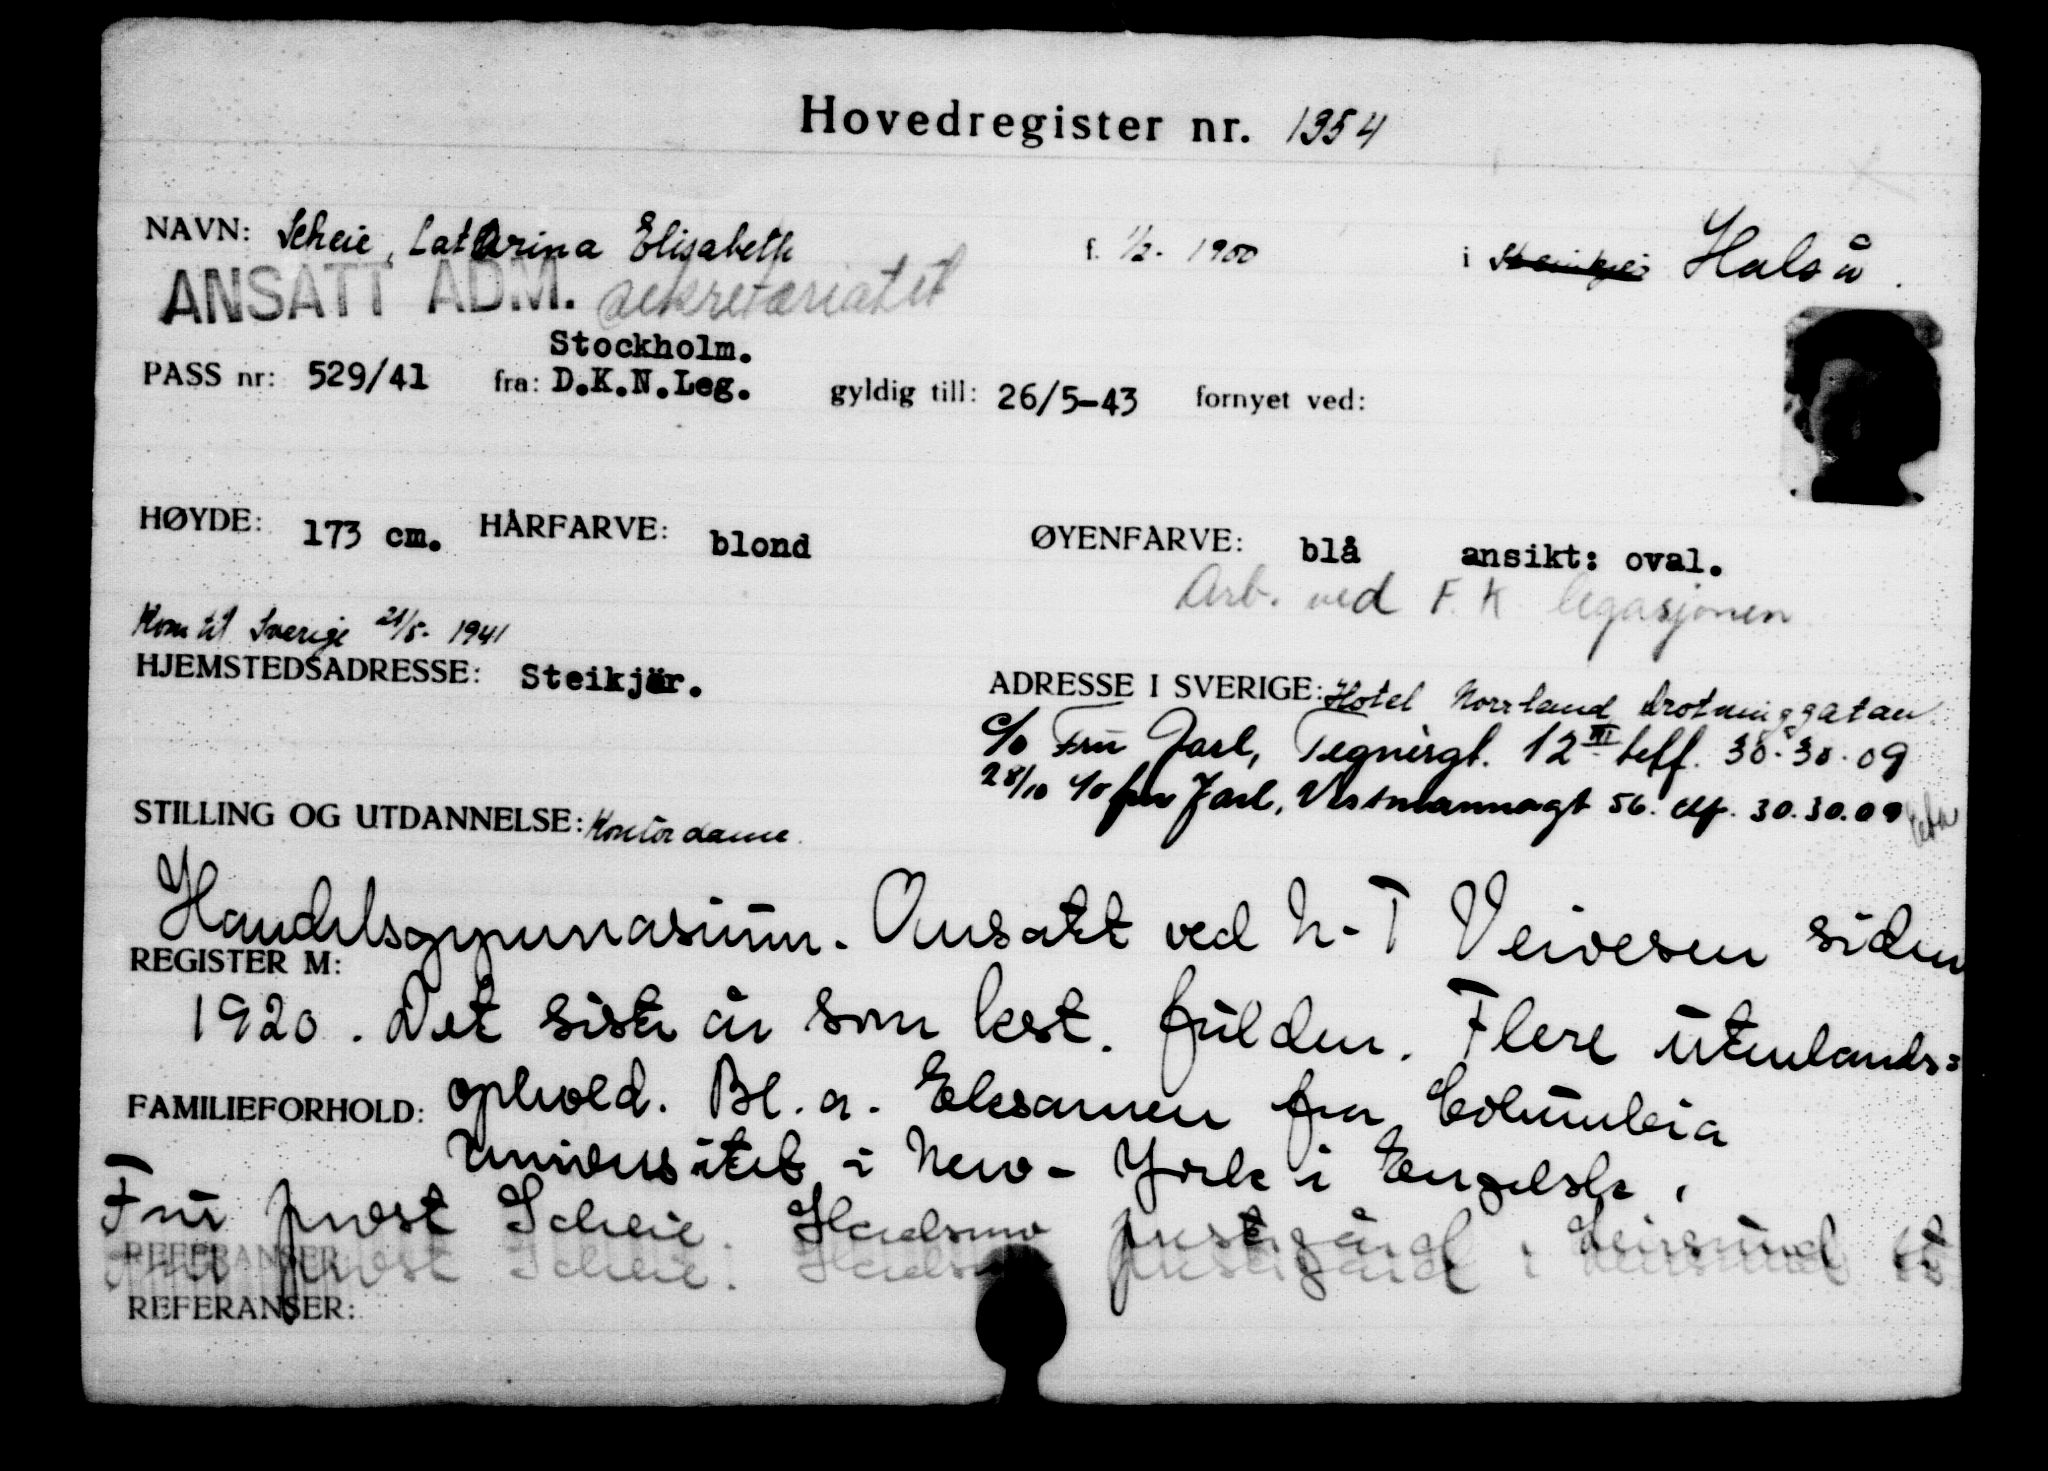 Hovedregister nr. 1354
NAVN: Scheie, Catharina Elisabeth f. 1/2. 1900 i Steinkjer Halså.
ANSATT ADM. sekretariatet
Stockholm.
PASS nr: 529/41 fra: D.K.N.Leg. gyldig till: 26/5-43 fornyet ved:
HØYDE: 173 cm. HÅRFARVE: blond ØYENFARVE: blå ansikt: oval.
Arb. ved F. K legasjonen
Kom til Sverige 21/5- 1941
HJEMSTEDSADRESSE: Steikjär. ADRESSE I SVERIGE: Hotel Norrland Drotninggatan
c/o Fru Jarl, Tegnérgt. 12 III telf. 30.30.09
28/10 c/o fru Jarl, Vestmannagt 56. tlf. 30.30.09
STILLING OG UTDANNELSE: Kontordame.
Handelsgymnasium. Ansatt ved N-T Veivesen siden
REGISTER M:
1920. Det siste år som best. fullm. Flere utenlands=
FAMILIEFORHOLD: ophold. Bl. a. Eksamen fra Columbia
Universitet i New-York i Engelsk.
Fru prost Scheie. Halsmo prestegård i Leirsund st
REFERANSER:
REFERANSER: